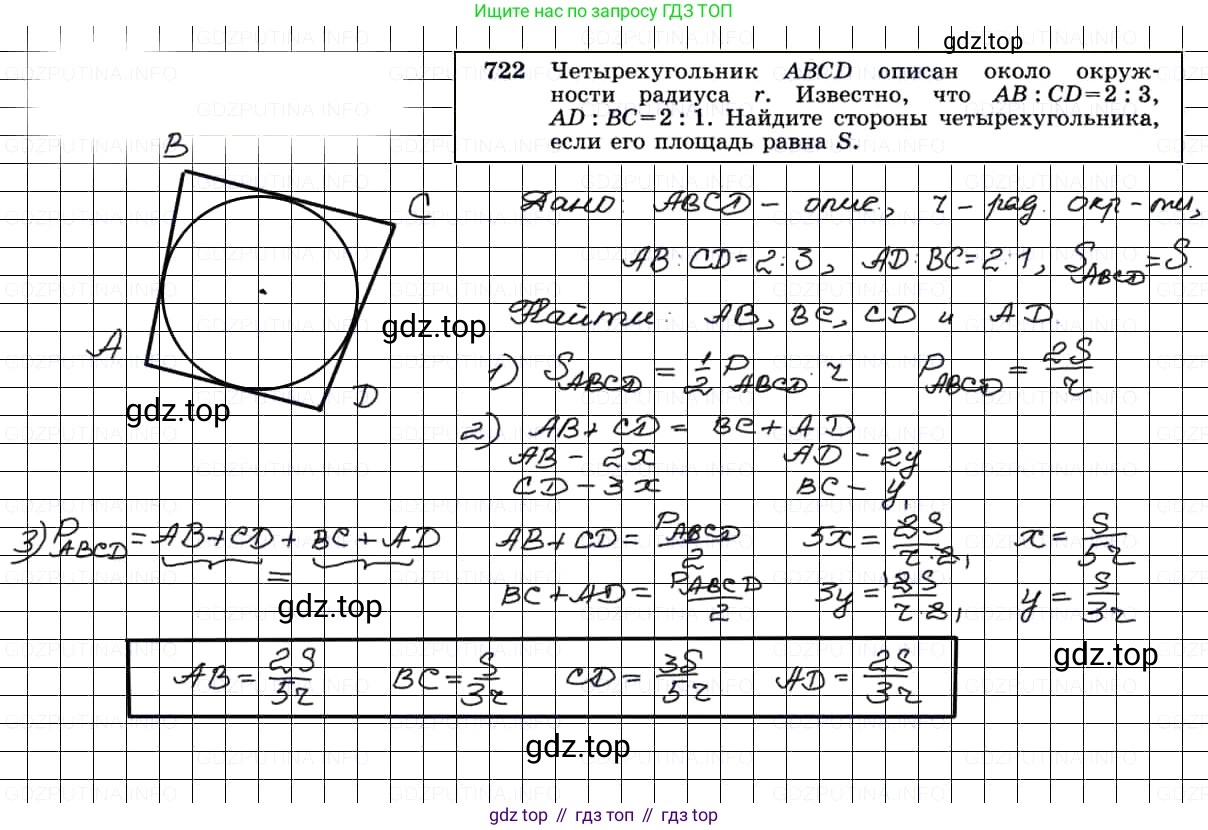 Ищите нас по запросу ГДЗ ТОП
gdz.top
722 Четырехугольник ABCD описан около окруж-
ности радиуса r. Известно, что AB : CD=2 : 3,
AD : BC=2 : 1. Найдите стороны четырехугольника,
если его площадь равна S.
B
C
A
D
gdz.top
gdz.top
Дано: ABCD – опис., r – рад. окр-ти,
AB:CD=2:3, AD:BC=2:1, S_ABCD=S.
Найти: AB, BC, CD и AD.
1) S_ABCD = 1/2 P_ABCD · r P_ABCD = 2S/r
2) AB + CD = BC + AD
AB – 2x AD – 2y
CD – 3x BC – y,
3) P_ABCD = AB+CD + BC+AD AB+CD = P_ABCD/2 5x = 2S/r·2, x = S/5r
= BC+AD = P_ABCD/2 3y = 2S/r·2, y = S/3r
gdz.top
gdz.top
AB = 2S/5r BC = S/3r CD = 3S/5r AD = 2S/3r
gdz.top
gdz top // гдз топ // gdz top
GDZPUTINA.INFO